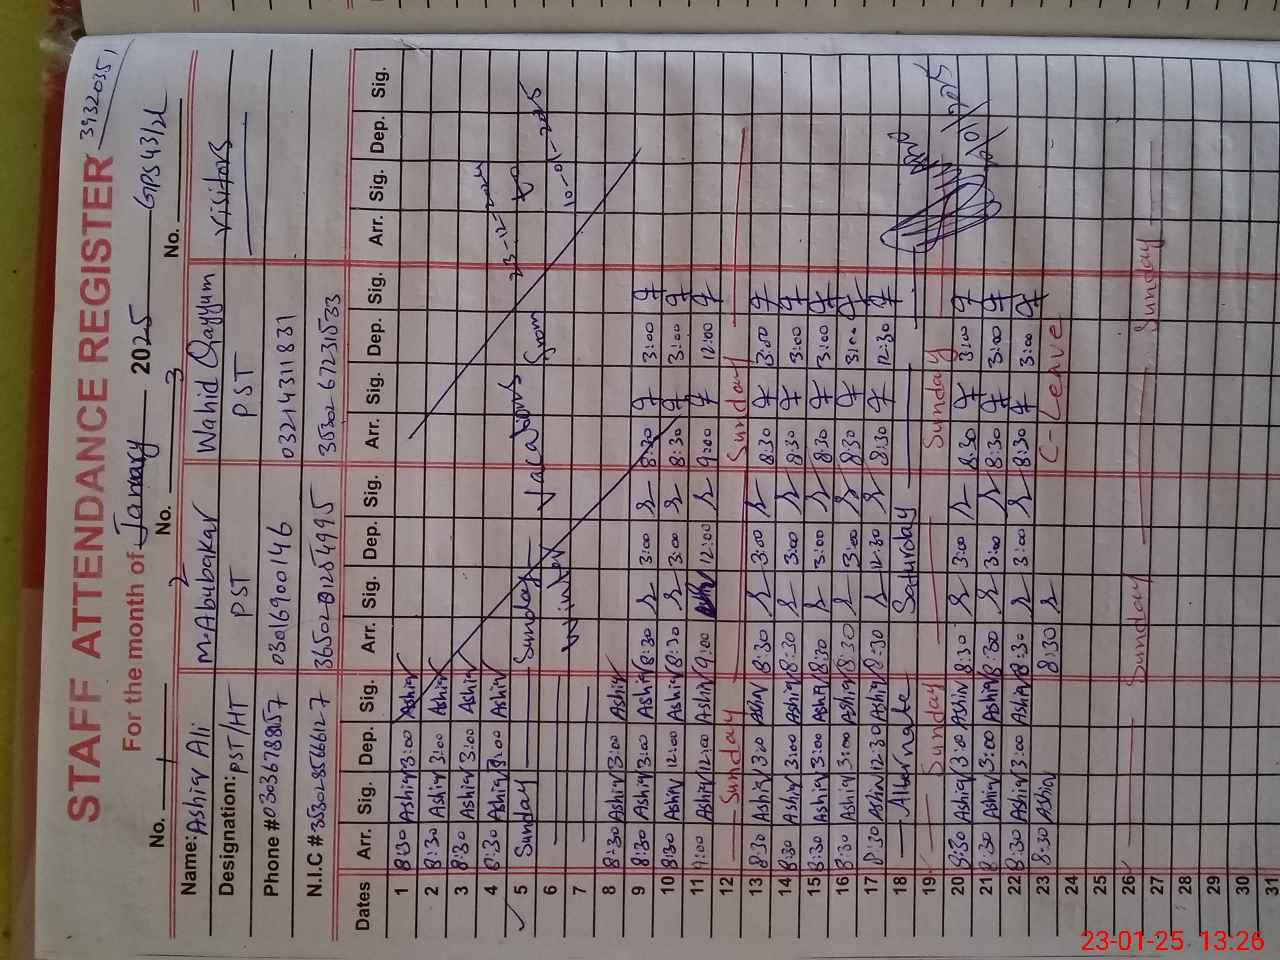 39320351
STAFF ATTENDANCE REGISTER
For the month of January 2025 GPS 43/2L
No. 1 No. 2 No. 3 No.
Name: Ashiq Ali M. Abubakar Wahid Qayyum Visitors
Designation: PST/HT PST PST
Phone # 03036788857 03016900146 03214311831
N.I.C # 3530285666127 36502-01254995 35302 67231533
Dates Arr. Sig. Dep. Sig. Arr. Sig. Dep. Sig. Arr. Sig. Dep. Sig. Arr. Sig. Dep. Sig.
1 8:30 Ashiq 3:00 Ashiq
2 8:30 Ashiq 3:00 Ashiq
3 8:30 Ashiq 3:00 Ashiq
4 8:30 Ashiq 3:00 Ashiq
5 Sunday Sunday Vacations from 23-12-2024 to 10-01-2025
6 Winter
7
8 8:30 Ashiq 3:00 Ashiq
9 8:30 Ashiq 3:00 Ashiq 8:30 3:00 8:30 3:00
10 8:30 Ashiq 12:00 Ashiq 8:30 3:00 8:30 3:00
11 9:00 Ashiq 12:00 Ashiq 9:00 12:00 9:00 12:00
12 Sunday Sunday
13 8:30 Ashiq 3:00 Ashiq 8:30 3:00 8:30 3:00
14 8:30 Ashiq 3:00 Ashiq 8:30 3:00 8:30 3:00
15 8:30 Ashiq 3:00 Ashiq 8:30 3:00 8:30 3:00
16 8:30 Ashiq 3:00 Ashiq 8:30 3:00 8:30 3:00
17 8:30 Ashiq 12:30 Ashiq 8:30 12:30 8:30 12:30
18 Alternate Saturday
19 Sunday Sunday
20 8:30 Ashiq 3:00 Ashiq 8:30 3:00 8:30 3:00
21 8:30 Ashiq 3:00 Ashiq 8:30 3:00 8:30 3:00
22 8:30 Ashiq 3:00 Ashiq 8:30 3:00 8:30 3:00
23 8:30 Ashiq 8:30 C-Leave
24
25
26 Sunday Sunday
27
28
29
30
31
23-01-25 13:26